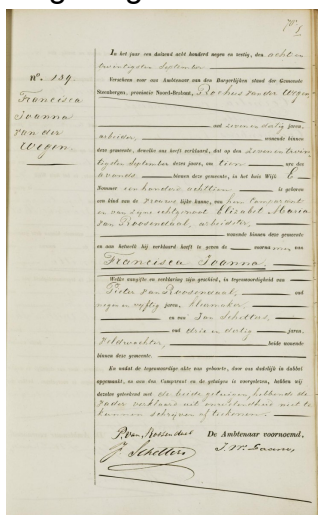 In het jaar een duizend acht honderd negen en zestig, den achten
twintigsten September
Verscheen voor ons Ambtenaar van den Burgerlijken stand der Gemeente
Nº. 139.
Steenbergen, provincie Noord-Braband, Rochus van der Wegen
Francisca
Joanna
van der
Wegen.
oud zeven en dertig jaren,
arbeider, wonende binnen
deze gemeente, dewelke ons heeft verklaard, dat op den zeven en twin
tigsten September dezes jaars, om tien ure des
avonds binnen deze gemeente, in het huis Wijk E
Nommer een honderd achttien is geboren
een kind van de vrouwelijke kunne, van hem Comparant
en van zijne echtgenoot Elizabet Maria
van Roosendaal, arbeidster,
wonende binnen deze gemeente
en aan hetwelk hij verklaard heeft te geven de voornamen van
Francisca Joanna.
Welke aangifte en verklaring zijn geschied, in tegenwoordigheid van
Pieter van Roosendaal, oud
negen en vijftig jaren, kleermaker,
en van Jan Schellers,
oud drie en dertig jaren,
veldwachter, beide wonende
binnen deze gemeente.
En nadat de tegenwoordige akte van geboorte, door ons dadelijk in dubbel
opgemaakt, en aan den Comparant en de getuigen is voorgelezen, hebben wij
dezelve geteekend met de beide getuigen, hebbende de
vader verklaard uit onkunde niet te
kunnen schrijven of teekenen.
P. van Rosendaal
De Ambtenaar voornoemd,
J. Schellers